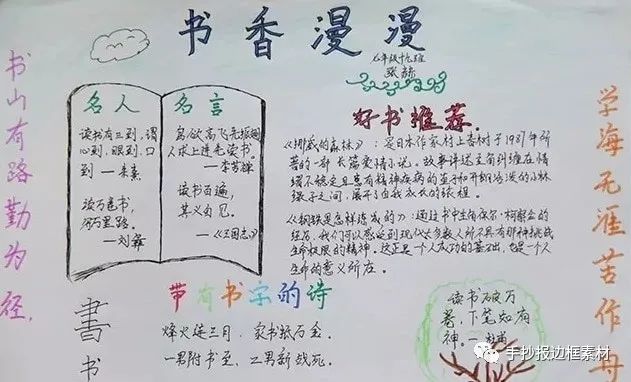 书香漫漫
七年级十九班
张赫
书山有路勤为径,
名人名言
读书有三到,谓
心到,眼到,口
到 — 朱熹
读万卷书,
行万里路。
— 刘彝
鸟欲高飞先振翅
人求上进先读书。
— 李苦禅
读书百遍,
其义自见。
—《三国志》
好书推荐。
《挪威的森林》:是日本作家村上春树于1987年所
著的一部长篇爱情小说。故事讲述主角纠缠在情
绪不稳定且患有精神疾病的直子和开朗活泼的小林
绿子之间,展开了自我成长的旅程。
《钢铁是怎样炼成的》:通过书中主角保尔·柯察金的
经历,我们可以感受到现代大多数人所不具有那种挑战
生命极限的精神。这正是一个人成功的基础,也是一个人
生命的意义所在。
学海无涯苦作舟
書
书
带有书字的诗
烽火连三月,家书抵万金。
一男附书至,二男新战死。
读书破万
卷,下笔如有
神。— 杜甫
手抄报边框素材